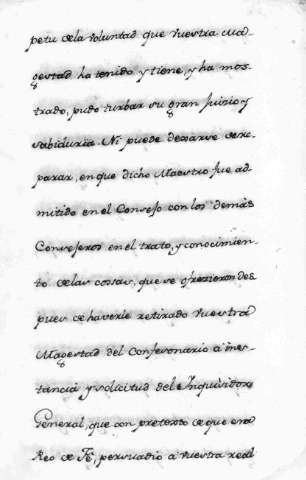 petu de la voluntad que Vuestra Ma-
gestad ha tenido y tiene, y ha mos-
trado, pudo turbar su gran Juicio y
sabiduria. Ni puede dexarse de re-
parar, en que dicho Maestro fue ad-
mitido en el Consejo con los demàs
Consejeros en el trato, y conocimien-
to de las cossas, que se ofrezieron des-
pues de haverle retirado Vuestra
Magestad del Confesonario à ins-
tancia y solicitud del Inquisidor
General, que con pretexto de que era
Reo de Fè, persuadio à Vuestra real